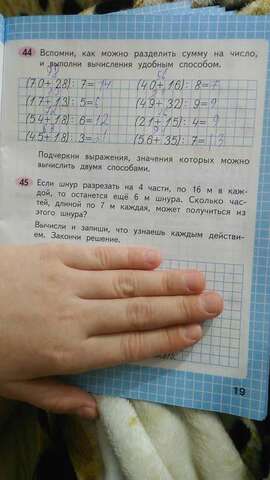 44 Вспомни, как можно разделить сумму на число,
и выполни вычисления удобным способом.
(70+28):7=14 (40+16):8=7
(17+13):5=6 (49+32):9=9
(54+18):6=12 (21+15):4=9
(45+18):3= (56+35):7=13
Подчеркни выражения, значения которых можно
вычислить двумя способами.
45 Если шнур разрезать на 4 части, по 16 м в каж-
дой, то останется ещё 6 м шнура. Сколько час-
тей, длиной по 7 м каждая, может получиться из
этого шнура?
Вычисли и запиши, что узнаешь каждым действи-
ем. Закончи решение.
19